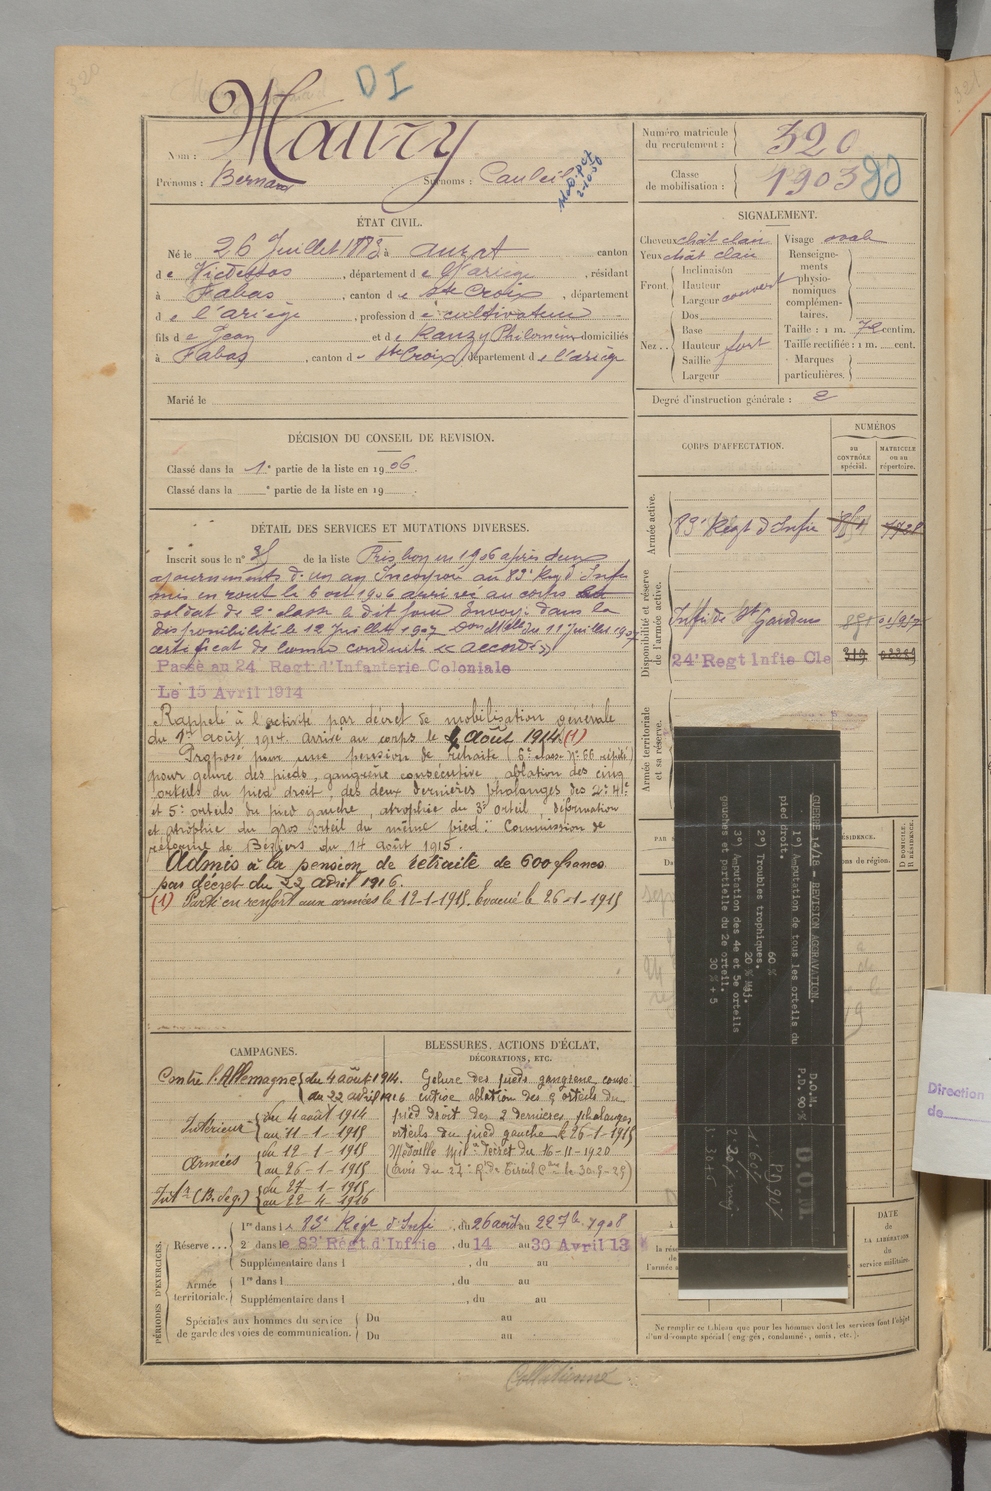 320
DI
Nom : Maury
Prénoms : Bernard Surnoms :
Numéro matricule du recrutement : 320
Classe de mobilisation : 1903
ÉTAT CIVIL.
Né le 26 Juillet 1883 à Auzat canton
de Vicdessos, département de l'Ariège, résidant
à Fabas, canton de Ste Croix, département
de l'ariège, profession de cultivateur
fils de Jean et de Rauzy Philomène domiciliés
à Fabas, canton de Ste Croix, département de l'ariège
Marié le
SIGNALEMENT.
Cheveux chât clair
Yeux chât clair
Front. Inclinaison
Hauteur
Largeur couvert
Nez.. Dos
Base
Hauteur fort
Saillie
Largeur
Visage oval
Renseignements physionomiques complémentaires.
Taille : 1 m. 72 centim.
Taille rectifiée : 1 m. cent.
Marques particulières.
Degré d'instruction générale : 2
DÉCISION DU CONSEIL DE REVISION.
Classé dans la 1e partie de la liste en 1906.
Classé dans la e partie de la liste en 19 .
CORPS D'AFFECTATION.
NUMÉROS
au CONTRÔLE spécial.
MATRICULE ou au répertoire.
Armée active.
83e Régt d'Infie
Disponibilité et réserve de l'armée active.
Infie de St Gaudens
24e Regt Infie Cle 319
Armée territoriale et sa réserve.
DÉTAIL DES SERVICES ET MUTATIONS DIVERSES.
Inscrit sous le n° de la liste Pris bon en 1906 après deux
ajournements d'un an Incorporé au 83e Reg d'Infie
mis en route le 6 oct 1906 arrivé au corps
soldat de 2e classe le dit jour Envoyé dans la
disponibilité le 12 Juillet 1907 du 11 Juillet 1907
certificat de bonne conduite « accordé »
Passé au 24 Regt d'Infanterie Coloniale
Le 15 Avril 1914
Rappelé à l'activité par décret de mobilisation générale
du 1er août 1914. arrivé au corps le 4 Août 1914 (1)
Proposé pour une pension de retraite (6e classe N° 66
pour gelure des pieds, gangrène consécutive, ablation des cinq
orteils du pied droit, des deux dernières phalanges des 2e 4e
et 5e orteils du pied gauche, atrophie du 3e orteil, déformation
et atrophie du gros orteil du même pied." Commission de
réforme de Béziers du 14 août 1915.
Admis à la pension de retraite de 600 francs
par décret du 22 avril 1916.
(1) Parti en renfort aux armées le 12-1-1915. Evacué le 26-1-1915
GUERRE 14/18 - REVISION AGGRAVATION.
1°) Amputation de tous les orteils du
pied droit.
60 %
2°) Troubles trophiques.
20 % Maj.
3°) Amputation des 4e et 5e orteils
gauches et partielle du 2e orteil.
30 % + 5
D.O.M.
P.D. 90 %
D.O.M.
CAMPAGNES.
Contre l'Allemagne du 4 août 1914.
au 22 avril 1916
Intérieur du 4 août 1914
au 11-1-1915
Armées du 12-1-1915
au 26-1-1915
Intr (B. Seg.) du 27-1-1915
au 22-4-1916
BLESSURES, ACTIONS D'ÉCLAT,
DÉCORATIONS, ETC.
Gelure des pieds gangrène consé
cutive ablation des 5 orteils du
pied droit des 2 dernières phalanges
orteils du pied gauche le 26-1-1915
Médaille Mil. décret du 16-11-1920
PÉRIODES D'EXERCICES.
Réserve... 1re dans le 83e Régt d'Infie, du 26 août au 22 7bre 1908
2e dans le 83e Régt d'Infrie, du 14 au 30 Avril 13
Supplémentaire dans l , du au
Armée territoriale. 1re dans l , du au
Supplémentaire dans l , du au
Spéciales aux hommes du service de garde des voies de communication. Du au
Du au
DOMICILE.
RÉSIDENCE.
DATE
de
LA LIBÉRATION
du
service militaire.
Ne remplir ce tableau que pour les hommes dont les services font l'objet
d'un décompte spécial (engagés, condamné, omis, etc.).
Direction
de
321